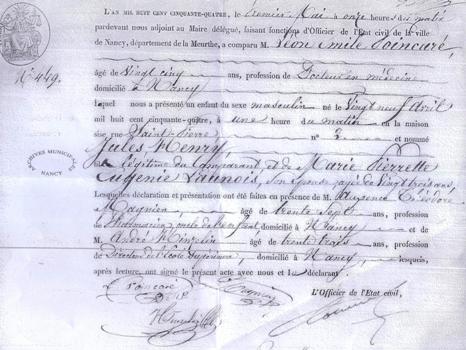 L'AN MIL HUIT CENT CINQUANTE-QUATRE, le premier Mai à onze heures du matin
pardevant nous adjoint au Maire délégué, faisant fonctions d'Officier de l'État civil de la ville
de Nancy, département de la Meurthe, a comparu M. Léon Emile Poincaré,
N° 449.
âgé de vingt cinq ans, profession de Docteur en médecine
domicilié à Nancy
lequel nous a présenté un enfant du sexe masculin né le vingt neuf Avril
mil huit cent cinquante-quatre, à une heure du matin en la maison
sise rue Saint-Pierre n° 2 et nommé
Jules Henry
fils légitime du Comparant et de Marie Pierrette
Eugénie Launois, son épouse agée de vingt trois ans,
ARCHIVES MUNICIPALES
NANCY
Lesquelles déclaration et présentation ont été faites en présence de M. Auguste Théodore
Magnien, âgé de trente sept ans, profession
de Pharmacien, oncle de l'enfant domicilié à Nancy et de
M. André Hinzelin âgé de trente trois ans, profession
de Directeur de l'Ecole Supérieure, domicilié à Nancy, lesquels,
après lecture, ont signé le présent acte avec nous et le déclarant.
L. Poincaré
Magnien
L'Officier de l'État civil,